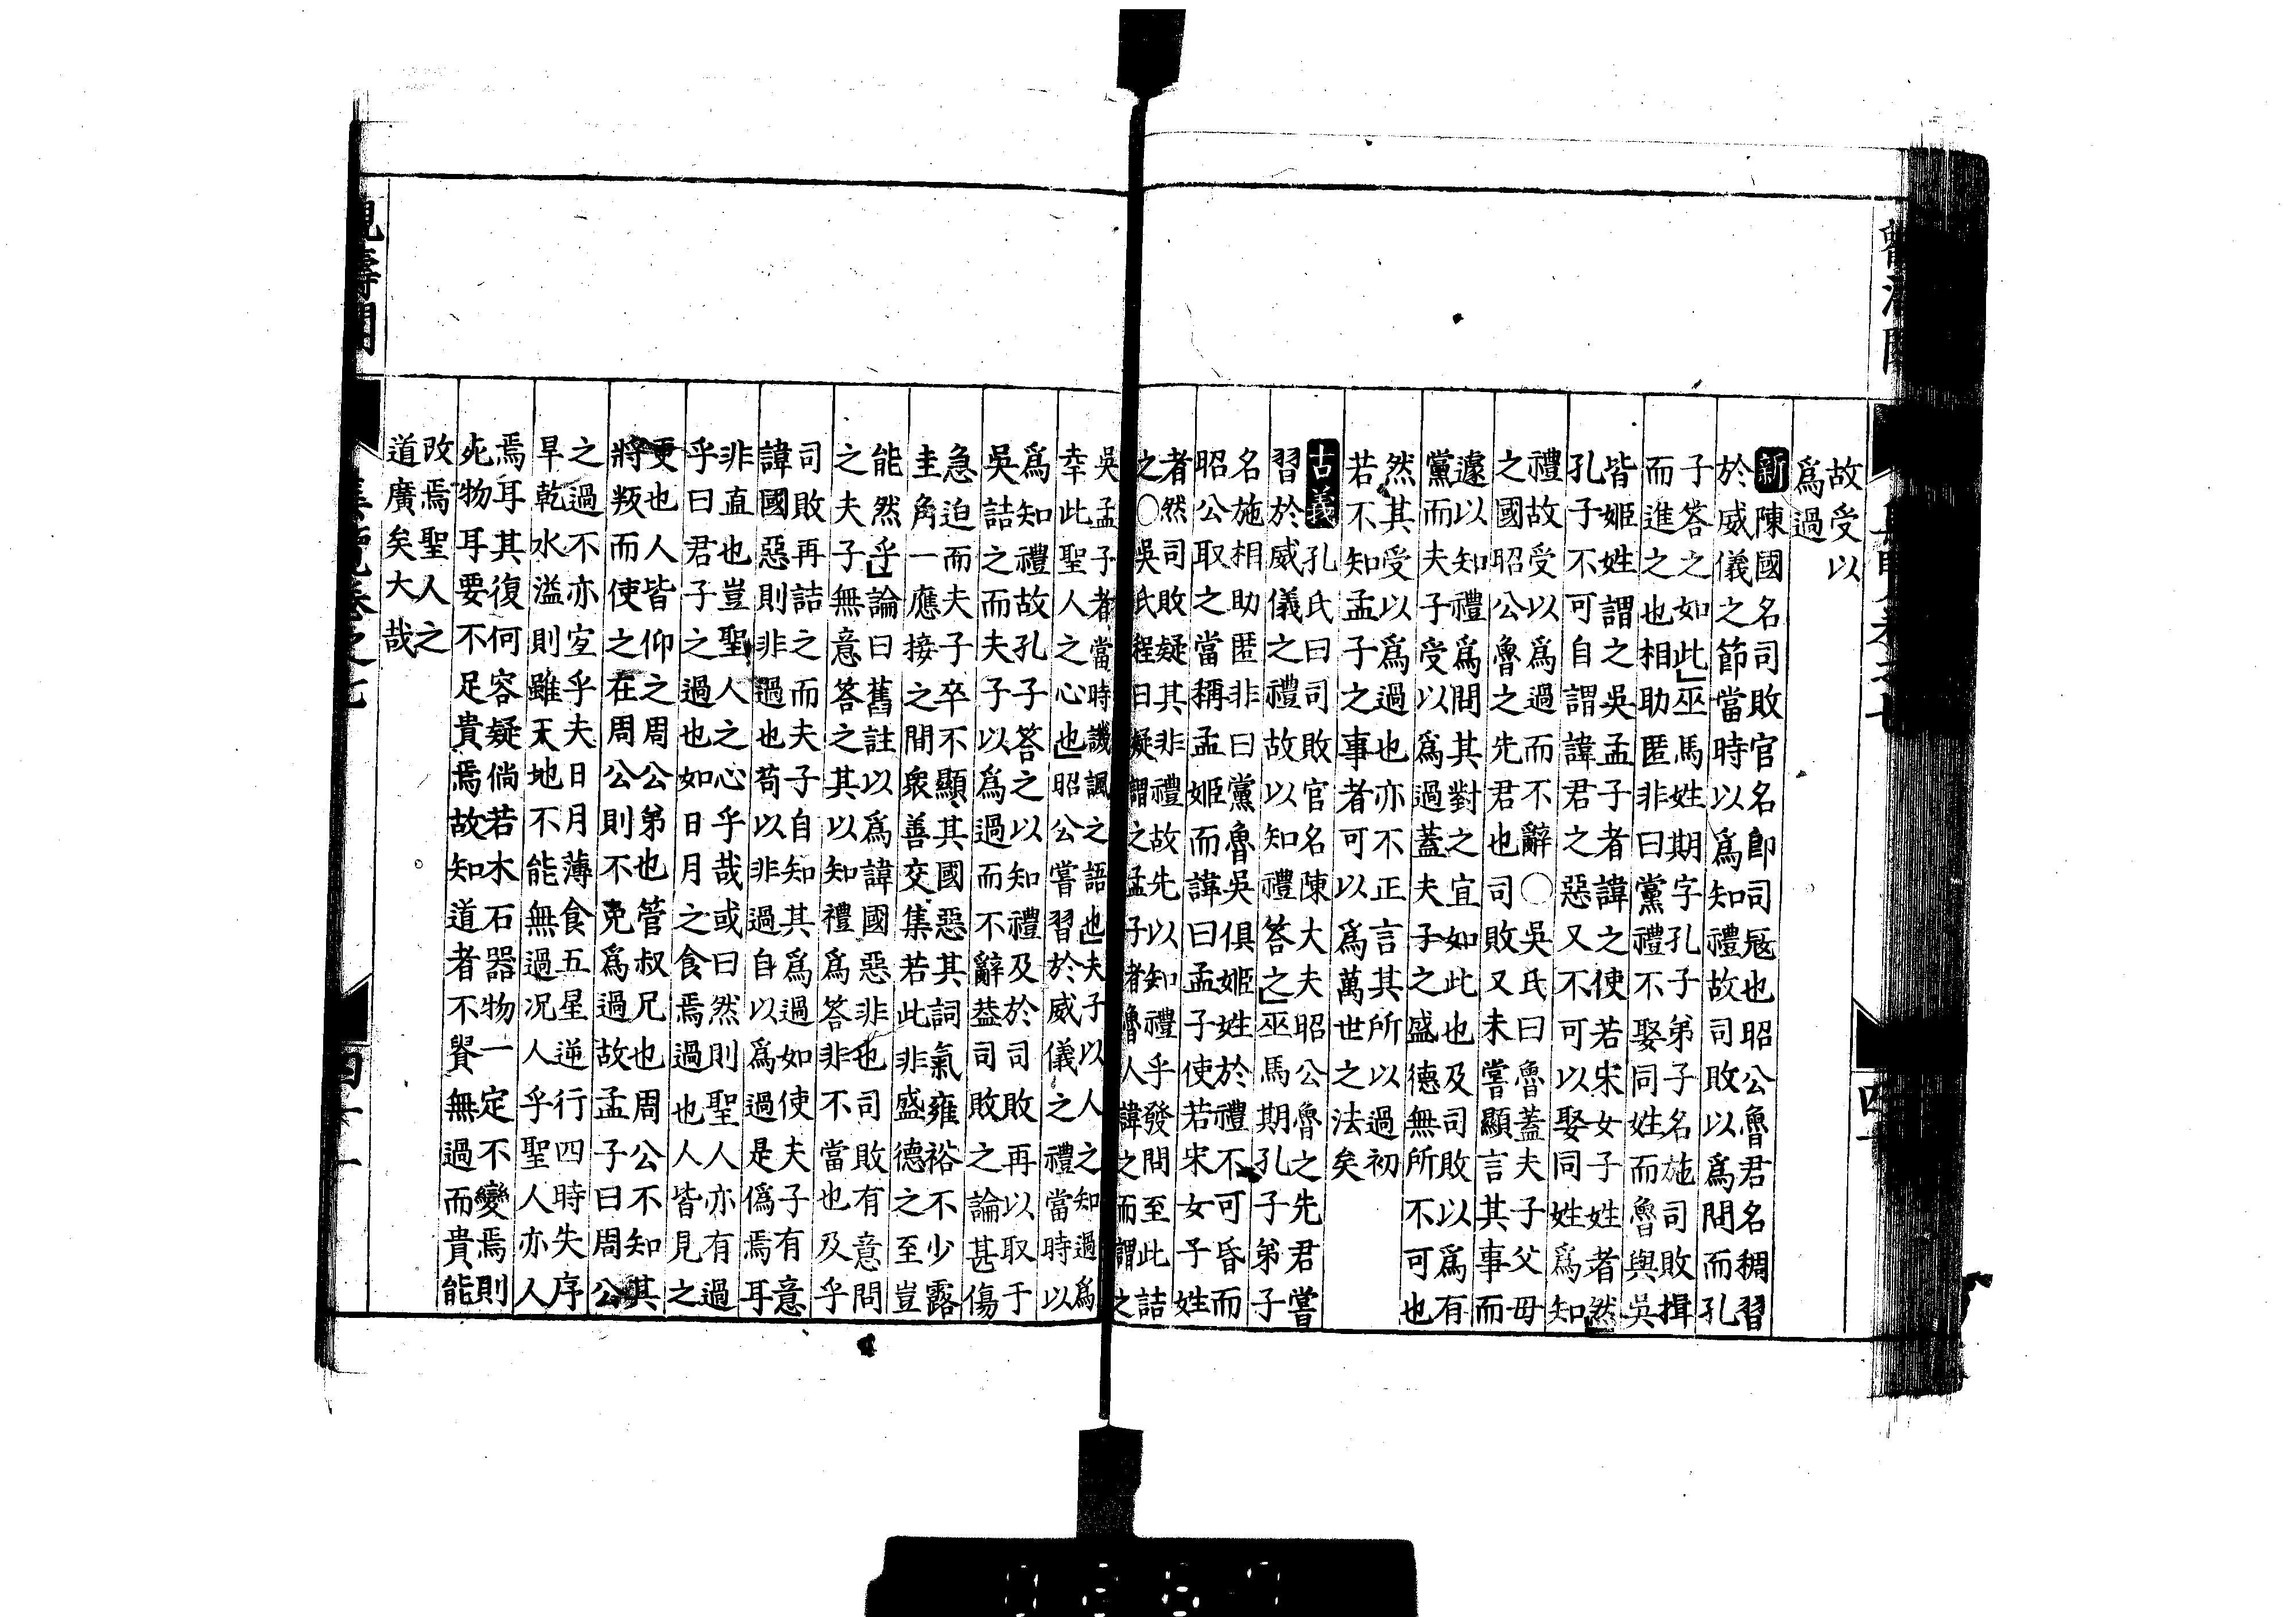 故受以
爲過
新陳國名司敗官名即司寇也昭公魯君名稠習
於威儀之節當時以爲知禮故司敗以爲問而孔
子答之如此巫馬姓期字孔子弟子名施司敗揖
而進之也相助匿非曰黨禮不娶同姓而魯與吳
皆姬姓謂之吳孟子者諱之使若宋女子姓者然
孔子不可自謂諱君之惡又不可以娶同姓爲知
禮故受以爲過而不辭○吳氏曰魯蓋夫子父母
之國昭公魯之先君也司敗又未嘗顯言其事而
遽以知禮爲問其對之宜如此也及司敗以爲有
黨而夫子受以爲過蓋夫子之盛德無所不可也
然其受以爲過也亦不正言其所以過初
若不知孟子之事者可以爲萬世之法矣
古義孔氏曰司敗官名陳大夫昭公魯之先君嘗
習於威儀之禮故以知禮答之巫馬期孔子弟子
名施相助匿非曰黨魯吳俱姬姓於禮不可昏而
昭公取之當稱孟姬而諱曰孟子使若宋女子姓
者然司敗疑其非禮故先以知禮乎發問至此詰
之○吳氏程曰疑謂之孟子者魯人諱之而謂之
吳孟子者當時譏諷之語也夫子以人之知過爲
幸此聖人之心也昭公嘗習於威儀之禮當時以
爲知禮故孔子答之以知禮及於司敗再以取于
吳詰之而夫子以爲過而不辭葢司敗之論甚傷
急迫而夫子卒不顯其國惡其詞氣雍裕不少露
圭角一應接之間衆善交集若此非盛德之至豈
能然乎論曰舊註以爲諱國惡非也司敗有意問
之夫子無意答之其以知禮爲答非不當也及乎
司敗再詰之而夫子自知其爲過如使夫子有意
諱國惡則非過也苟以非過自以爲過是僞焉耳
非直也豈聖人之心乎哉或曰然則聖人亦有過
乎曰君子之過也如日月之食焉過也人皆見之
更也人皆仰之周公弟也管叔兄也周公不知其
將叛而使之在周公則不免爲過故孟子曰周公
之過不亦宐乎夫日月薄食五星逆行四時失序
旱乾水溢則雖天地不能無過況人乎聖人亦人
焉耳其復何容疑倘若木石器物一定不變焉則
死物耳要不足貴焉故知道者不貴無過而貴能
改焉聖人之
道廣矣大哉